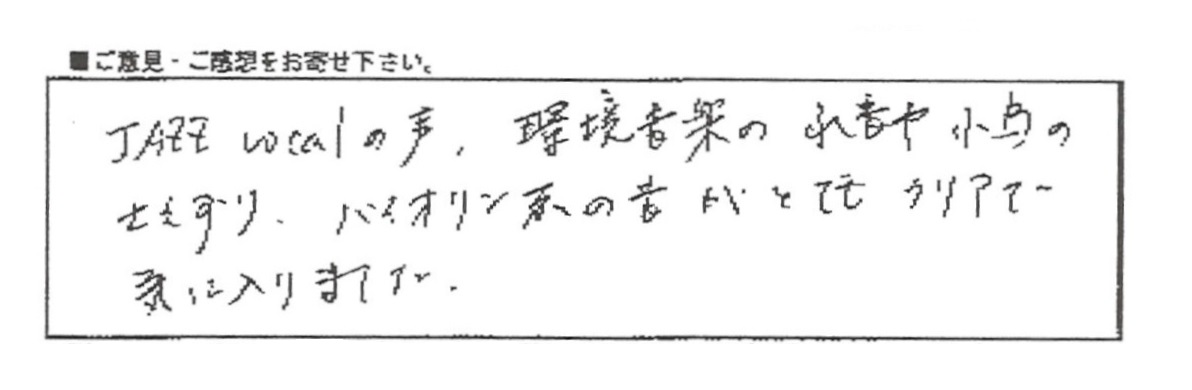 ■ご意見・ご感想をお寄せ下さい。
JAZZ vocalの声、環境音楽の水音や小鳥の
さえずり、バイオリン系の音がとてもクリアで
気に入りました。